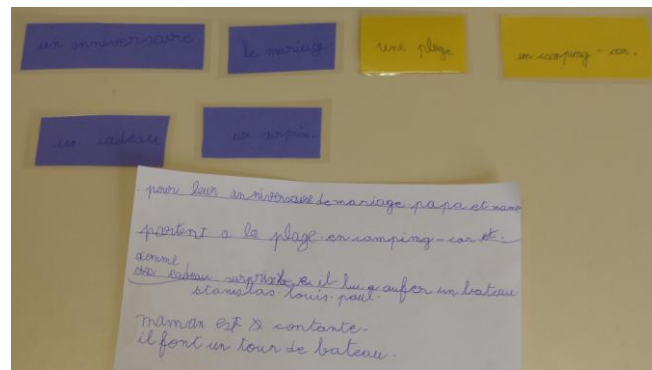 un anniversaire.
le mariage
une plage
un camping-car.
un cadeau
une surprise.
pour leur anniversaire de mariage papa et mama
partent a la plage en camping-car et.
comme
des cadeau surprise il lui a aufer un bateau
stanislas. louis. paul.
maman est contante.
il font un tour de bateau.